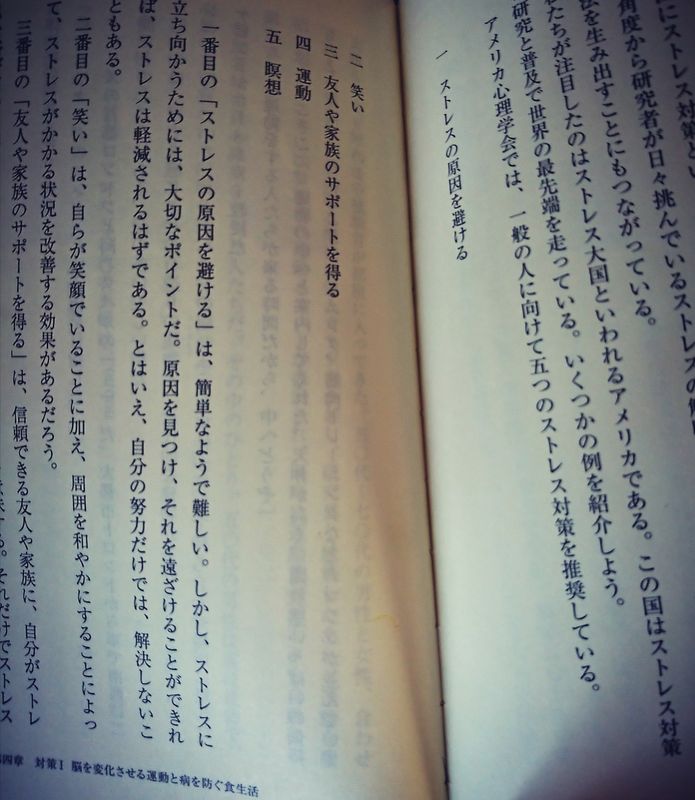 にストレス対策とい
角度から研究者が日々挑んでいるストレスの
法を生み出すことにもつながっている。
たちが注目したのはストレス大国といわれるアメリカである。この国はストレス対策
研究と普及で世界の最先端を走っている。いくつかの例を紹介しよう。
アメリカ心理学会では、一般の人に向けて五つのストレス対策を推奨している。
一 ストレスの原因を避ける
二 笑い
三 友人や家族のサポートを得る
四 運動
五 瞑想
一番目の「ストレスの原因を避ける」は、簡単なようで難しい。しかし、ストレスに
立ち向かうためには、大切なポイントだ。原因を見つけ、それを遠ざけることができれ
ば、ストレスは軽減されるはずである。とはいえ、自分の努力だけでは、解決しないこ
ともある。
二番目の「笑い」は、自らが笑顔でいることに加え、周囲を和やかにすることによっ
て、ストレスがかかる状況を改善する効果があるだろう。
三番目の「友人や家族のサポートを得る」は、信頼できる友人や家族に、自分がストレ
する。それだけでストレス
四章 対策Ⅰ 脳を変化させる運動と病を防ぐ食生活